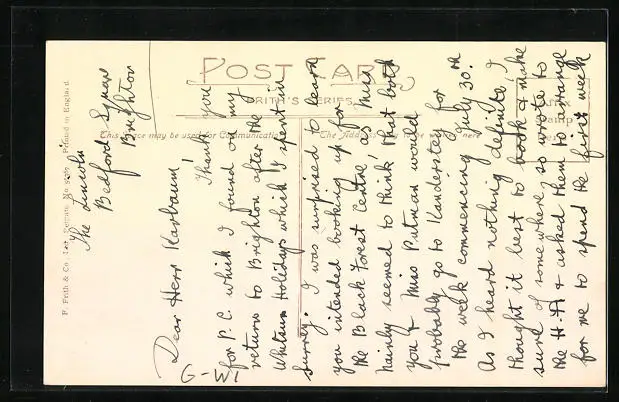 POST CARD
FRITH'S SERIES
This space may be used for Communication
The Address only to be written here
Affix
Stamp
F. Frith & Co. Ltd., Reigate. No
Printed in England
The Lincoln
Bedford Square
Brighton
Dear Herr Karbaum!
Thank you
for P.C. which I found on my
return to Brighton after the
Whitsun Holidays which I spent in
Surrey. I was surprised to learn
you intended booking up for
the Black Forest Centre, Miss
Hainly seemed to think that both
you & Miss Putman would
probably go to Kandersteg for
the week commencing July 30th
As I heard nothing definite, I
thought it best to book & make
sure of somewhere, so wrote to
the H-A & asked them to arrange
for me to spend the first week
G-W1